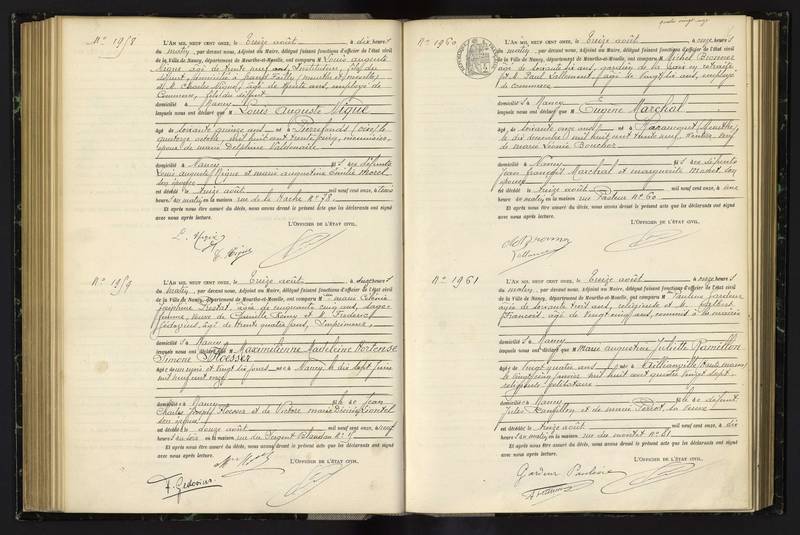 N° 1958
L'AN MIL NEUF CENT ONZE, le Treize août à dix heures
du matin, par devant nous, Adjoint au Maire, délégué faisant fonctions d'officier de l'état civil
de la Ville de Nancy, département de Meurthe-et-Moselle, ont comparu M Louis auguste
Nique, âgé de trente neuf ans, Instituteur, fils du
défunt, domicilié à
et M. Charles Nique, âgé de trente ans, employé de
Commerce, fils du défunt
domicilié à Nancy
lesquels nous ont déclaré que M Louis Auguste Nique
âgé de soixante quinze ans né à Pierrefonds (oise) le
quatorze octobre mil huit cent trente cinq, menuisier,
époux de marie Delphine
domicilié à Nancy fils des défunts
Louis auguste Nique et marie augustine Morel
son épouse
est décédé le treize août mil neuf cent onze, à trois
heures du matin en la maison rue de la Hache N° 78.
Et après nous être assuré du décès, nous avons dressé le présent acte que les déclarants ont signé
avec nous après lecture.
L'OFFICIER DE L'ÉTAT CIVIL.
L. Nique
C. Nique
N° 1959
L'AN MIL NEUF CENT ONZE, le Treize août à onze heures
du matin, par devant nous, Adjoint au Maire, délégué faisant fonctions d'officier de l'état civil
de la Ville de Nancy, département de Meurthe-et-Moselle, ont comparu M marie
Joséphine âgée de cinquante cinq ans, sage-
femme, veuve de Camille Remy et M. Frederic
âgé de trente quatre ans,
domicilié à Nancy
lesquels nous ont déclaré que M Maximilienne Madeleine Hortense
Simone
âgée d'un mois et vingt six jours née à Nancy le dix sept juin
mil neuf cent onze
domiciliée à Nancy fille de Jean
Charles Joseph et de Victoire marie
son épouse
est décédée le douze août mil neuf cent onze, à neuf
heures du soir en la maison rue du Sergent Blandan N° 7
Et après nous être assuré du décès, nous avons dressé le présent acte que les déclarants ont signé
avec nous après lecture.
L'OFFICIER DE L'ÉTAT CIVIL.
quatre vingt onze
N° 1960
L'AN MIL NEUF CENT ONZE, le Treize août à onze heures
du matin, par devant nous, Adjoint au Maire, délégué faisant fonctions d'officier de l'état civil
de la Ville de Nancy, département de Meurthe-et-Moselle, ont comparu M Michel
âgé de soixante six ans, gardien de la paix en retraite
et M. Paul Lallement, âgé de vingt six ans, employé
de commerce
domicilié à Nancy
lesquels nous ont déclaré que M Eugène Marchal
âgé de soixante onze ans né à Haraucourt (Meurthe)
le dix novembre mil huit cent trente neuf, rentier, veuf
de marie Léonie Boucher
domicilié à Nancy fils des défunts
Jean françois Marchal et marguerite son
épouse
est décédé le treize août mil neuf cent onze, à une
heure du matin en la maison rue Pasteur N° 60
Et après nous être assuré du décès, nous avons dressé le présent acte que les déclarants ont signé
avec nous après lecture.
L'OFFICIER DE L'ÉTAT CIVIL.
Lallement
N° 1961
L'AN MIL NEUF CENT ONZE, le Treize août à onze heures
du matin, par devant nous, Adjoint au Maire, délégué faisant fonctions d'officier de l'état civil
de la Ville de Nancy, département de Meurthe-et-Moselle, ont comparu M Pauline Gardeur
âgée de trente huit ans, religieuse et M. Albert
François, âgé de vingt cinq ans, commis à la mairie
domicilié à Nancy
lesquels nous ont déclaré que M Marie augustine Juliette Ramillon
âgée de vingt quatre ans née à (Haute marne)
le vingt cinq mil huit cent quatre vingt sept
religieuse, célibataire
domiciliée à Nancy fille de défunt
Jules Ramillon et de marie Perrot, sa veuve
est décédée le treize août mil neuf cent onze, à dix
heures du matin en la maison rue du montet N° 81
Et après nous être assuré du décès, nous avons dressé le présent acte que les déclarants ont signé
avec nous après lecture.
L'OFFICIER DE L'ÉTAT CIVIL.
Gardeur Pauline